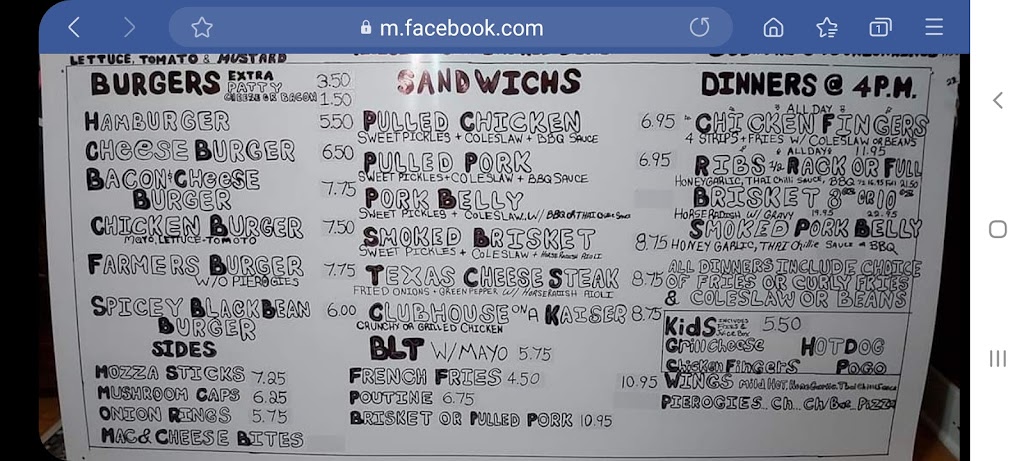 m.facebook.com
1
LETTUCE, TOMATO & MUSTARD
BURGERS
EXTRA
PATTY 3.50
CHEESE OR BACON 1.50
HAMBURGER 5.50
CHEESE BURGER 6.50
BACON & CHEESE
BURGER 7.75
CHICKEN BURGER 7.50
MAYO, LETTUCE-TOMOTO
FARMERS BURGER 7.75
W/O PIEROGIES
SPICEY BLACK BEAN 6.00
BURGER
SIDES
MOZZA STICKS 7.25
MUSHROOM CAPS 6.25
ONION RINGS 5.75
MAC & CHEESE BITES
SANDWICHS
PULLED CHICKEN 6.95
SWEET PICKLES + COLESLAW + BBQ SAUCE
PULLED PORK 6.95
SWEET PICKLES + COLESLAW + BBQ SAUCE
PORK BELLY
SWEET PICKLES + COLESLAW W/ BBQ OR THAI
SMOKED BRISKET 8.75
SWEET PICKLES + COLESLAW + HORSE RADISH AIOLI
TEXAS CHEESE STEAK 8.75
FRIED ONIONS + GREEN PEPPER W/ HORSERADISH AIOLI
CLUBHOUSE ON A KAISER 8.75
CRUNCHY OR GRILLED CHICKEN
BLT W/MAYO 5.75
FRENCH FRIES 4.50
POUTINE 6.75
BRISKET OR PULLED PORK 10.95
DINNERS @ 4 P.M.
ALL DAY
CHICKEN FINGERS
4 STRIPS + FRIES W/ COLESLAW OR BEANS
ALL DAY 11.95
RIBS 1/2 RACK OR FULL
HONEY GARLIC, THAI CHILI SAUCE, BBQ 1/2 16.95 Full 21.50
BRISKET 8oz OR 10oz
HORSERADISH W/ GRAVY 19.95 22.95
SMOKED PORK BELLY
HONEY GARLIC, THAI Chillie SAUCE & BBQ
ALL DINNERS INCLUDE CHOICE
OF FRIES OR CURLY FRIES
& COLESLAW OR BEANS
KidS INCLUDES FRIES & Juice Box 5.50
Grill Cheese HOTDOG
Chicken Fingers POGO
10.95 WINGS Mild, Hot, Honey Garlic, Thai Chili Sauce
PIEROGIES.. Ch... Ch/Bac.. PIZZA